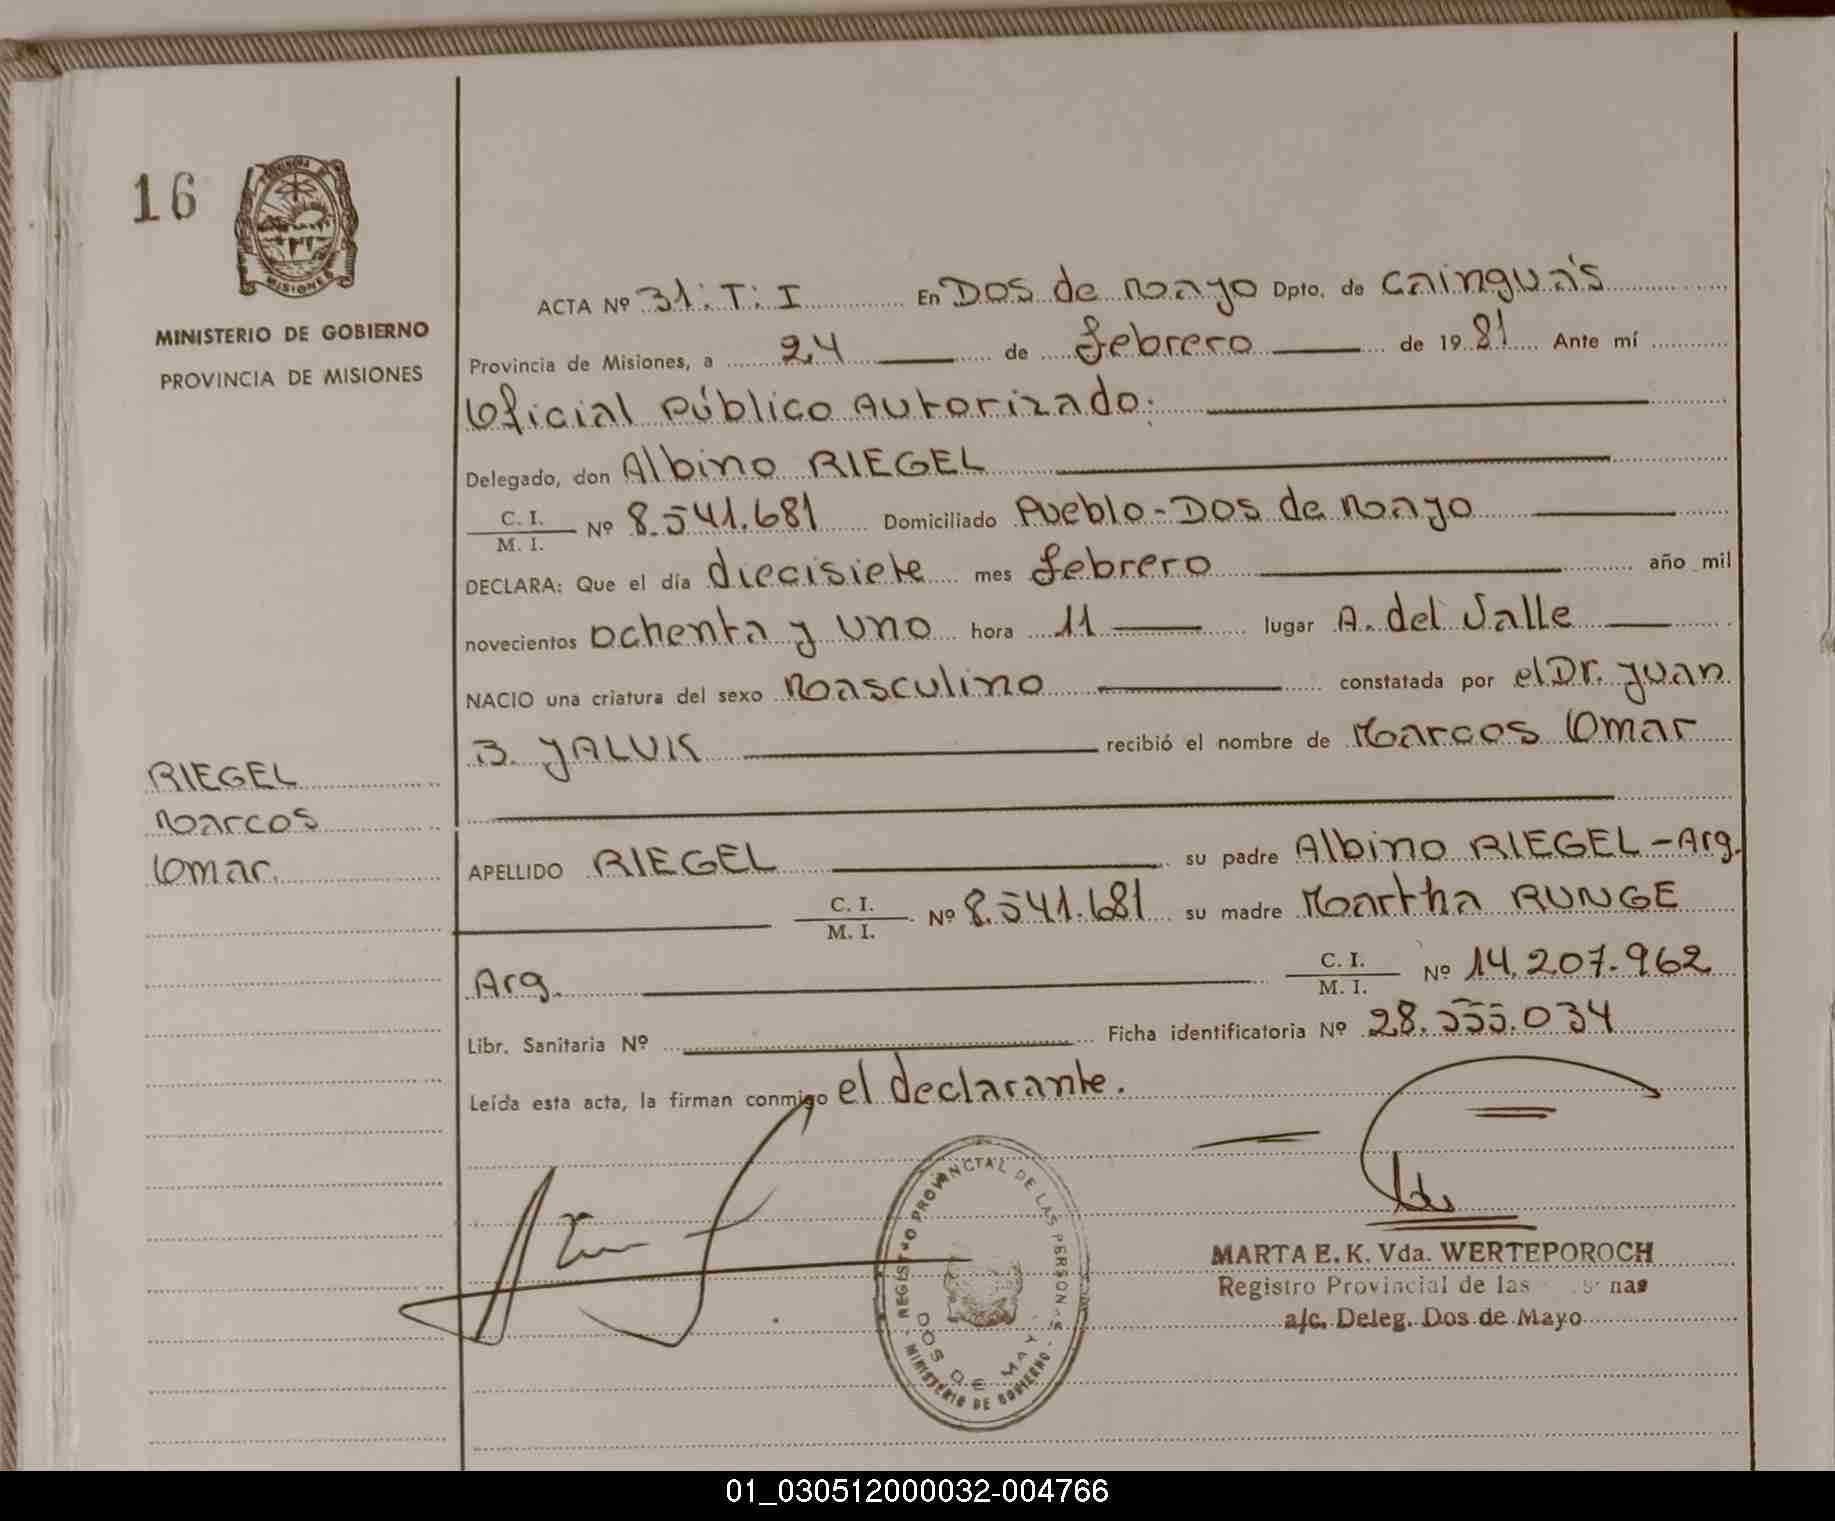 16
PROVINCIA DE
MISIONES
MINISTERIO DE GOBIERNO
PROVINCIA DE MISIONES
ACTA Nº 31.T.I En Dos de Mayo Dpto. de Cainguás
Provincia de Misiones, a 24 de febrero de 1981 Ante mí
Oficial Público Autorizado.
Delegado, don Albino RIEGEL
C. I. / M. I. Nº 8.541.681 Domiciliado Pueblo-Dos de Mayo
DECLARA: Que el día diecisiete mes febrero año mil
novecientos ochenta y uno hora 11 lugar A. del Valle
NACIO una criatura del sexo Masculino constatada por el Dr. Juan
B. YALUK recibió el nombre de Marcos Omar
RIEGEL
Marcos
Omar.
APELLIDO RIEGEL su padre Albino RIEGEL-Arg.
C. I. / M. I. Nº 8.541.681 su madre Martha RUNGE
Arg. C. I. / M. I. Nº 14.207.962
Libr. Sanitaria Nº Ficha identificatoria Nº 28.555.034
Leída esta acta, la firman conmigo el declarante.
REGISTRO PROVINCIAL DE LAS PERSONAS
DOS DE MAYO
MINISTERIO DE GOBIERNO
MARTA E. K. Vda. WERTEPOROCH
Registro Provincial de las
a/c. Deleg. Dos de Mayo
01_030512000032-004766